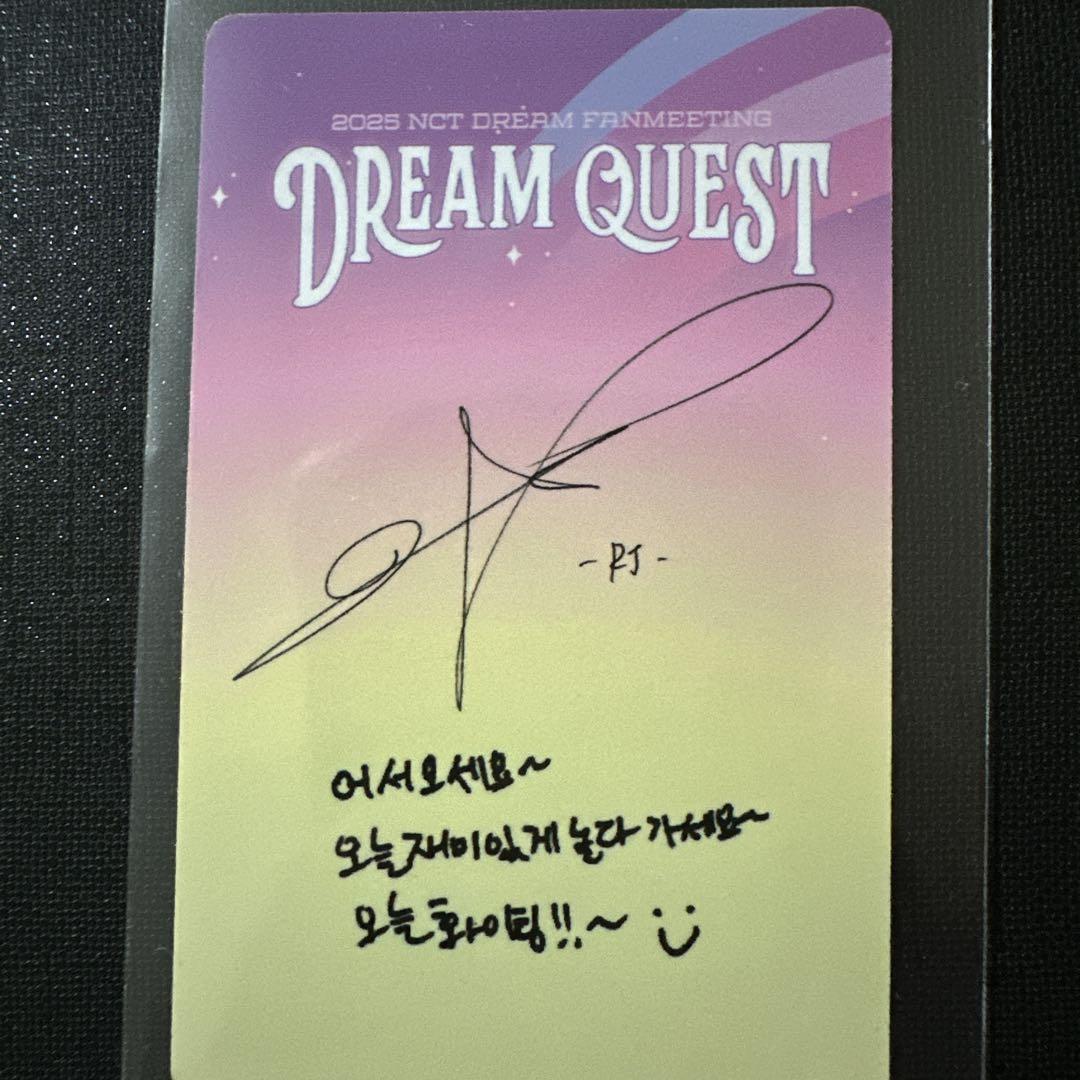 2025 NCT DREAM FANMEETING
DREAM QUEST
-RJ-
어서오세요~
오늘 재미있게 놀다 가세요~
오늘 화이팅!!~ :)